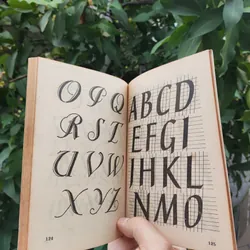 O P Q
R S T
U V W
X Y Z
ABCD
EFGI
IHKL
NMO